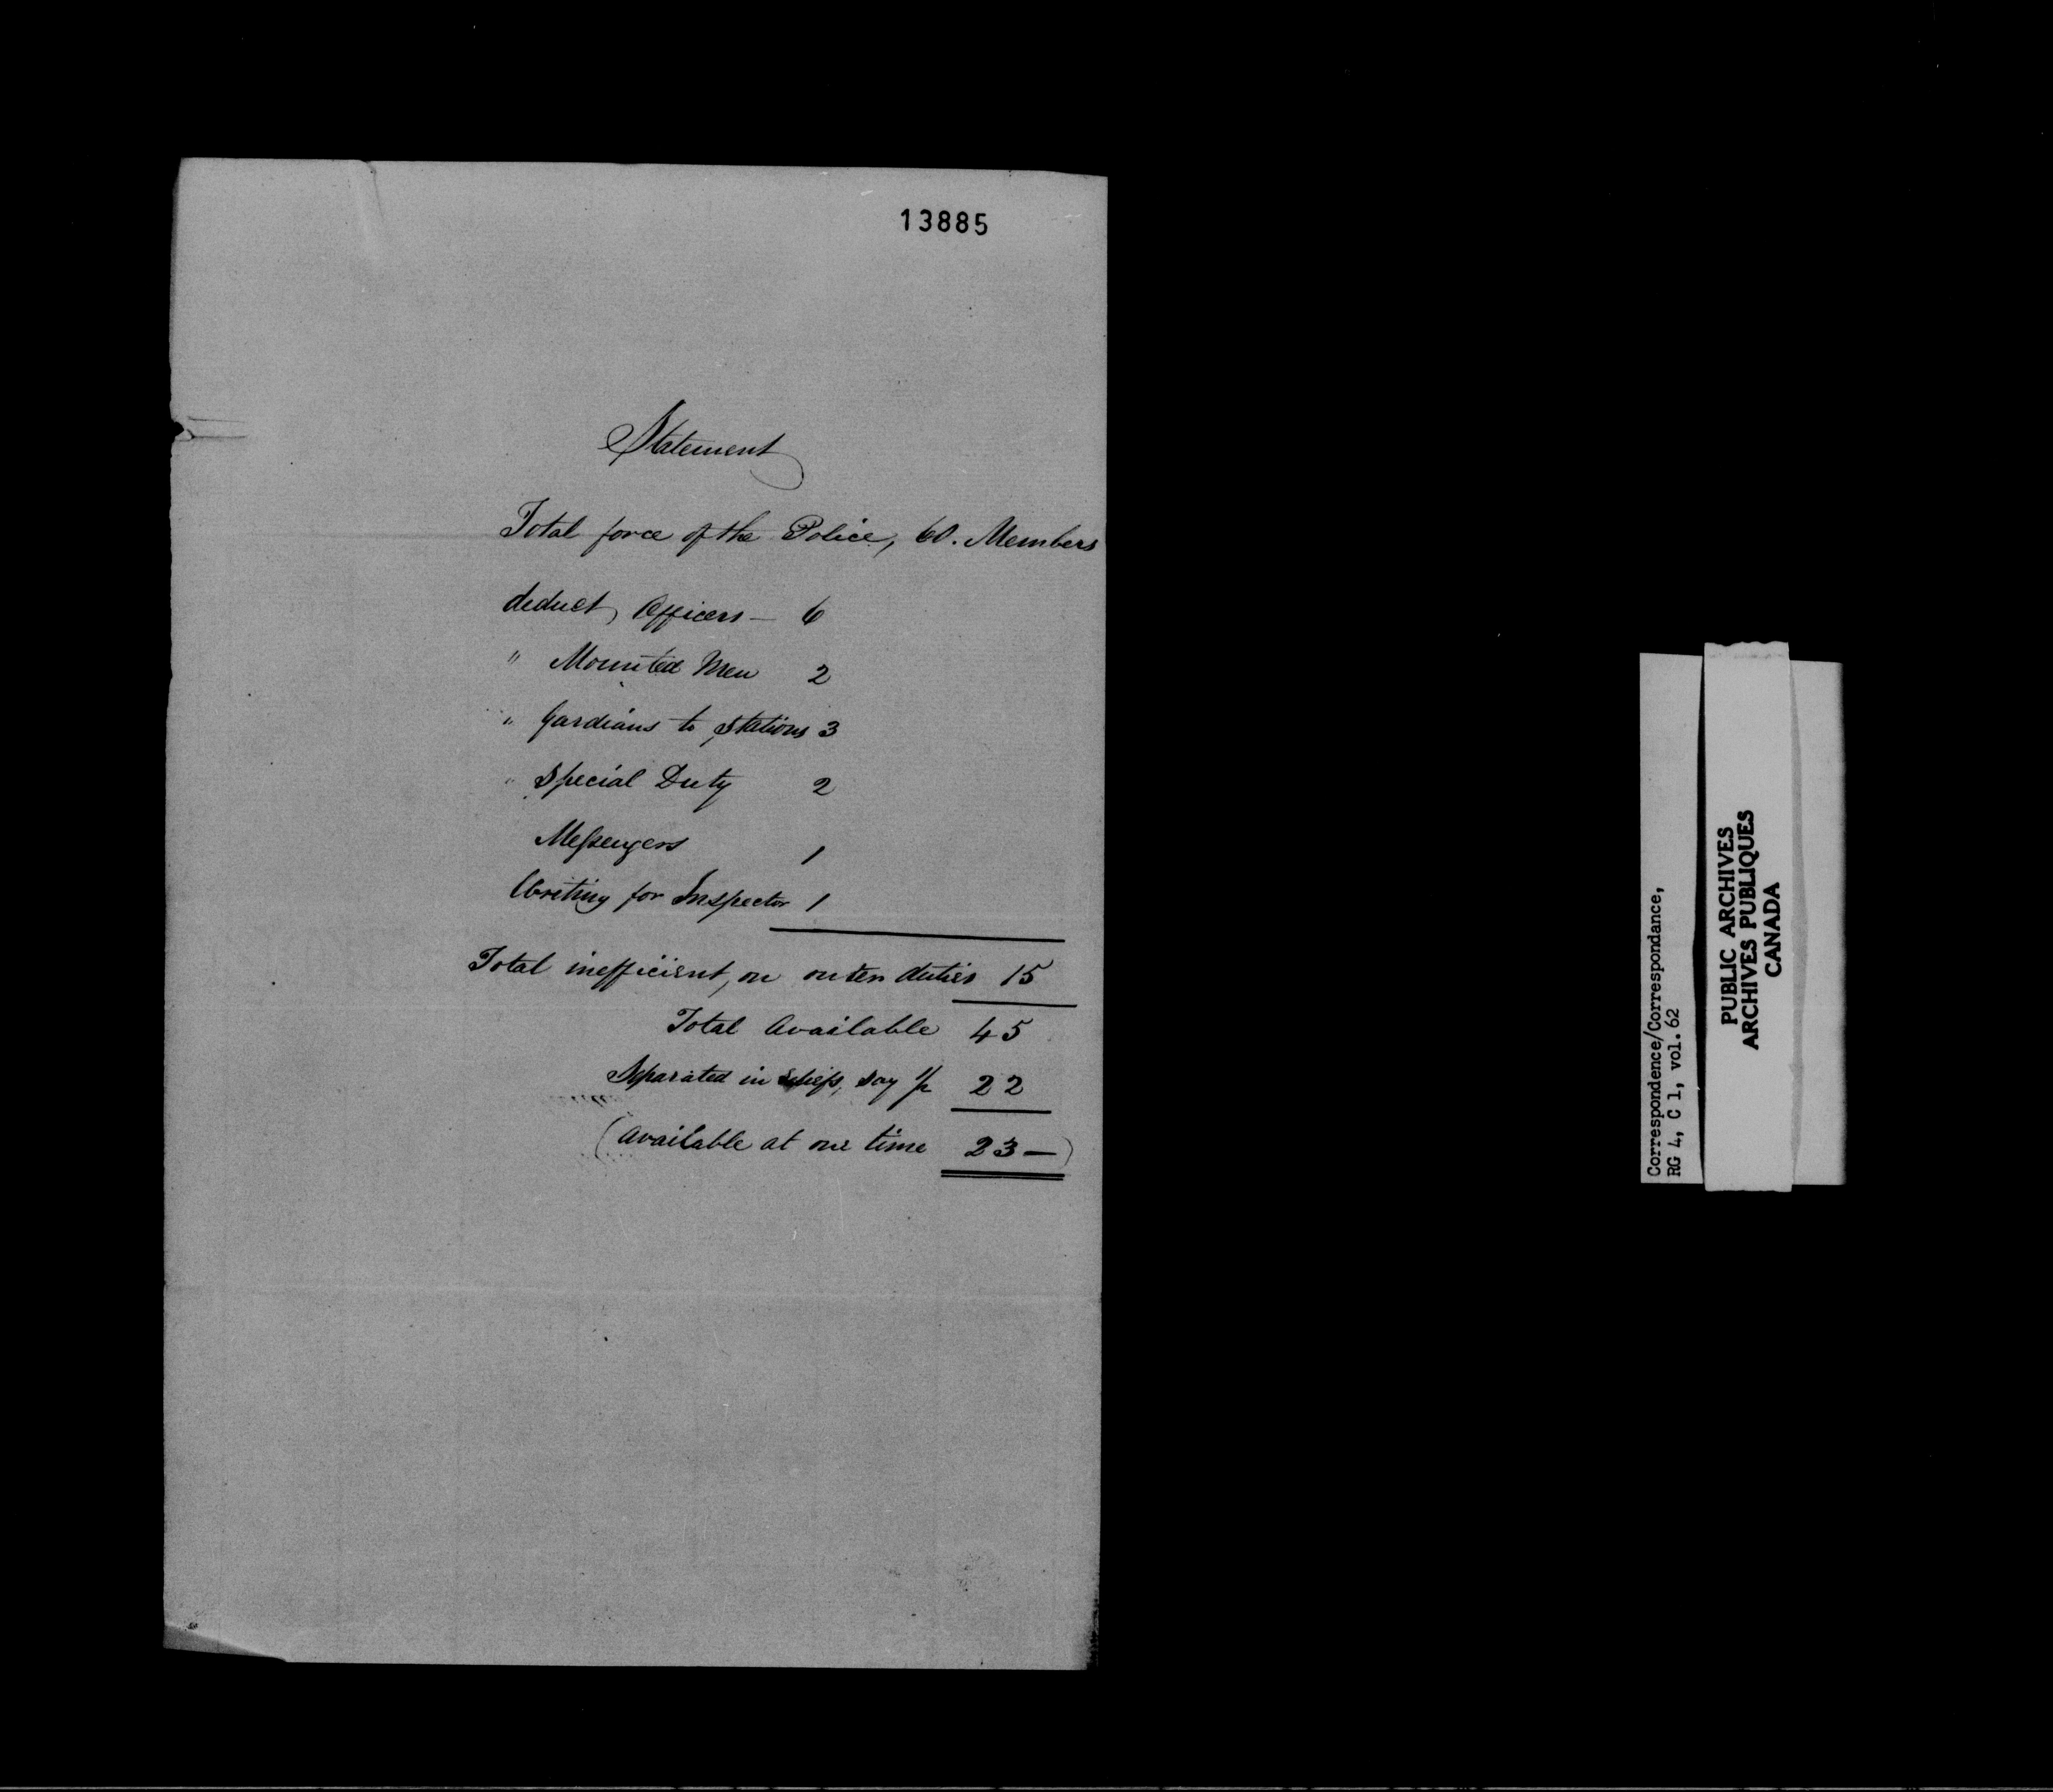 13885
Statement
Total force of the Police, 60. Members
deduct, Officers — 6
" Mounted Men 2
" Gardians to Stations 3
" Special Duty 2
Messengers 1
Writing for Inspector 1
Total inefficient, on duties 15
Total Available 45
Separated in say 1/2 22
(Available at one time 23 —)
Correspondence/Correspondance,
RG 4, C 1, vol. 62
PUBLIC ARCHIVES
ARCHIVES PUBLIQUES
CANADA